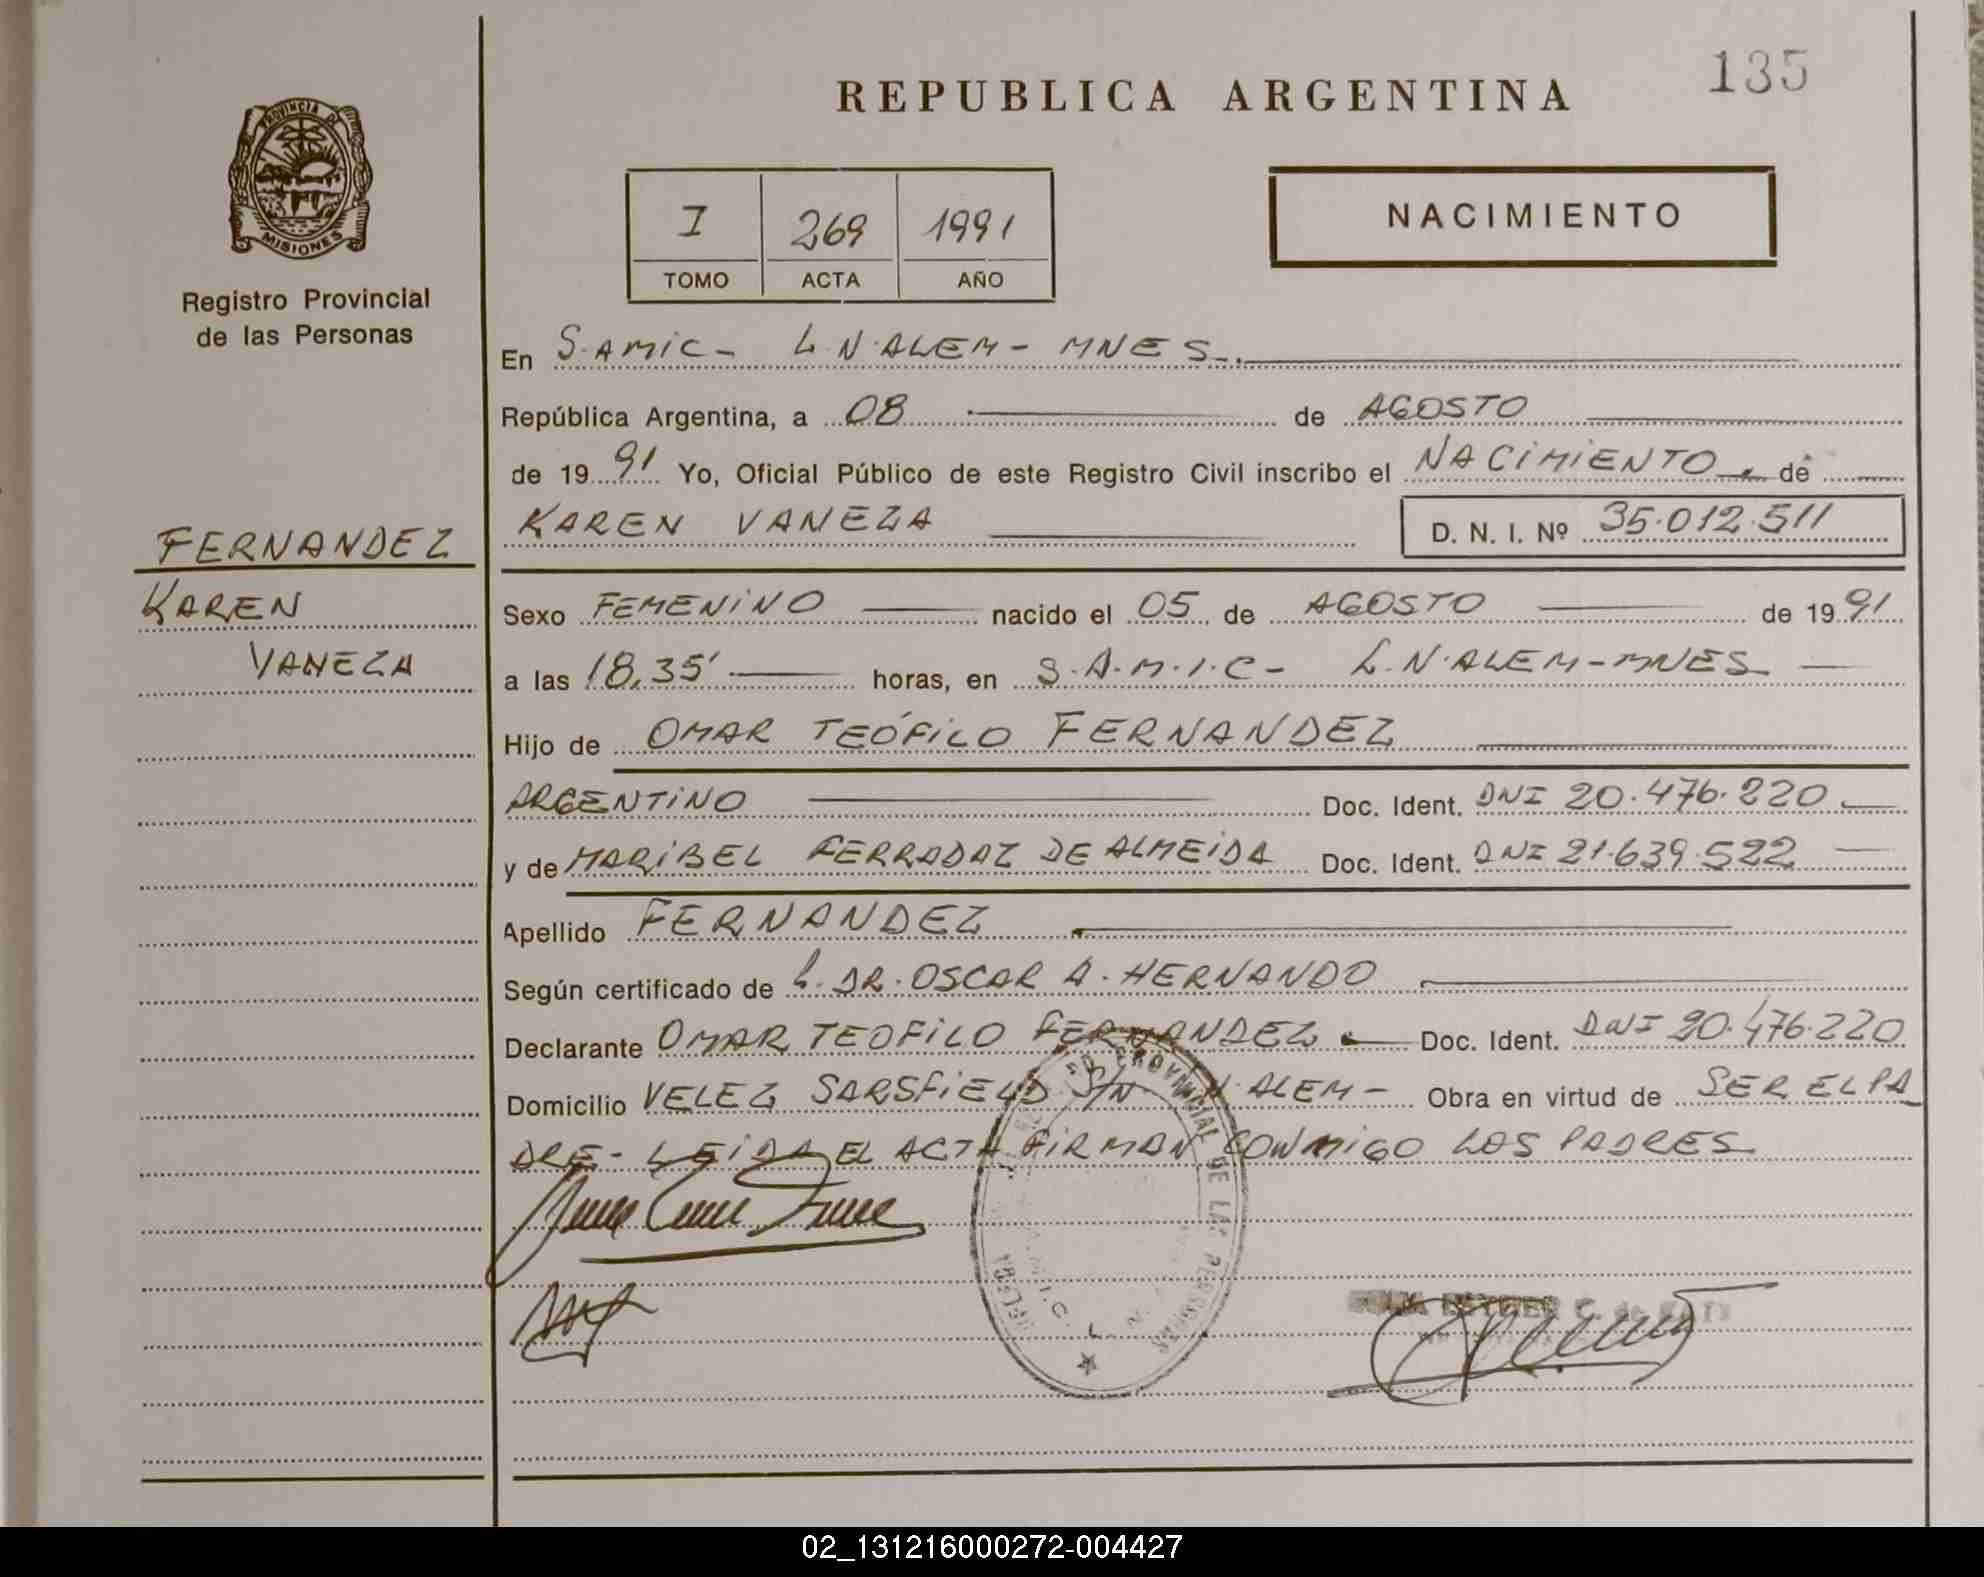 135
REPUBLICA ARGENTINA
PROVINCIA DE
MISIONES
Registro Provincial
de las Personas
I 269 1991
TOMO ACTA AÑO
NACIMIENTO
En S.AMIC- L.N.ALEM- MNES.
República Argentina, a 08 de AGOSTO
de 1991 Yo, Oficial Público de este Registro Civil inscribo el NACIMIENTO de
KAREN VANEZA D. N. I. Nº 35.012.511
FERNANDEZ
KAREN
VANEZA
Sexo FEMENINO nacido el 05 de AGOSTO de 1991
a las 18,35' horas, en S.A.M.I.C- L.N.ALEM-MNES
Hijo de OMAR TEÓFILO FERNANDEZ
ARGENTINO Doc. Ident. DNI 20.476.220
y de MARIBEL FERRADAZ DE ALMEIDA Doc. Ident. DNI 21.639.522
Apellido FERNANDEZ
Según certificado de L. DR. OSCAR A. HERNANDO
Declarante OMAR TEOFILO FERNANDEZ Doc. Ident. DNI 20.476.220
Domicilio VELEZ SARSFIELD S/N ALEM- Obra en virtud de SER EL PA
DRE- LEIDA EL ACTA FIRMAN CONMIGO LOS PADRES
PROVINCIAL DE LAS PERSONAS
ESTHER C. de
02_131216000272-004427